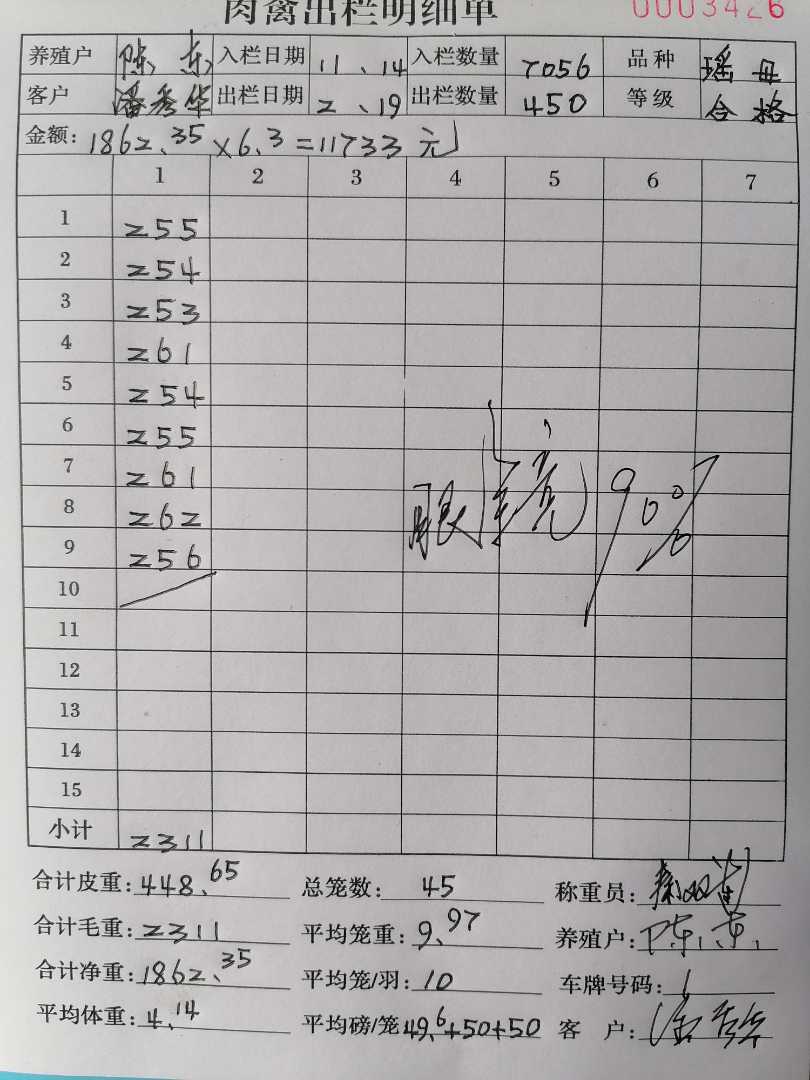 肉禽出栏明细单 0003426
养殖户 陈东 入栏日期 11、14 入栏数量 7056 品种 瑶母
客户 潘秀华 出栏日期 2、19 出栏数量 450 等级 合格
金额: 1862.35×6.3=11733元
1 2 3 4 5 6 7
1 255
2 254
3 253
4 261
5 254
6 255
7 261
8 262
9 256
10
11
12
13
14
15
小计 2311
90%
合计皮重: 448.65 总笼数: 45 称重员:
合计毛重: 2311 平均笼重: 9.97 养殖户: 陈东
合计净重: 1862.35 平均笼/羽: 10 车牌号码:
平均体重: 4.14 平均磅/笼 49.6+50+50 客户: